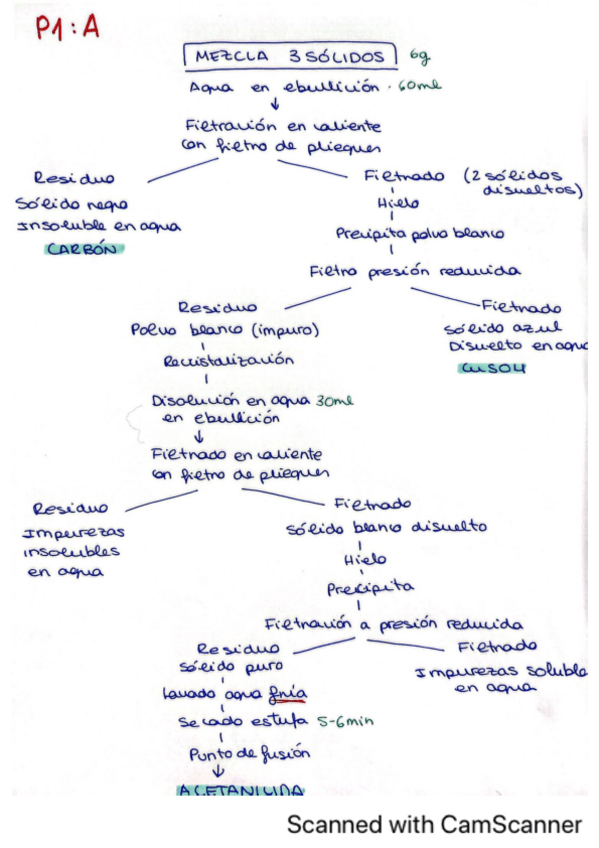 P1: A
MEZCLA 3 SÓLIDOS 6g
Agua en ebullición. 60ml
Filtración en caliente
con filtro de pliegues
Residuo
Sólido negro
Insoluble en agua
CARBÓN
Filtrado (2 sólidos
disueltos)
Hielo
Precipita polvo blanco
Filtro presión reducida
Residuo
Polvo blanco (impuro)
Recristalización
Disolución en agua 30ml
en ebullición
Filtrado en caliente
con filtro de pliegues
Filtrado
Sólido azul
Disuelto en agua
CuSO4
Residuo
Impurezas
insolubles
en agua
Filtrado
Sólido blanco disuelto
Hielo
Precipita
Filtración a presión reducida
Residuo
Sólido puro
Lavado agua fría
Secado estufa 5-6min
Punto de fusión
ACETANILIDA
Filtrado
Impurezas soluble
en agua
Scanned with CamScanner